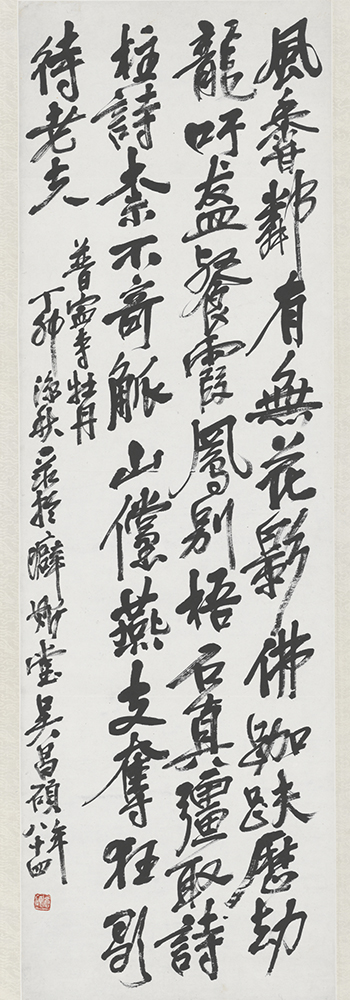 風香鄰有無花影佛跏趺歷劫
龍吁盋餐霞鳳別梧石真彊取詩
柱詩柰不奇觚山儻燕支奪狂歌
待老夫
普寧寺牡丹
丁卯深秋录於癖斯堂吳昌碩年八十四